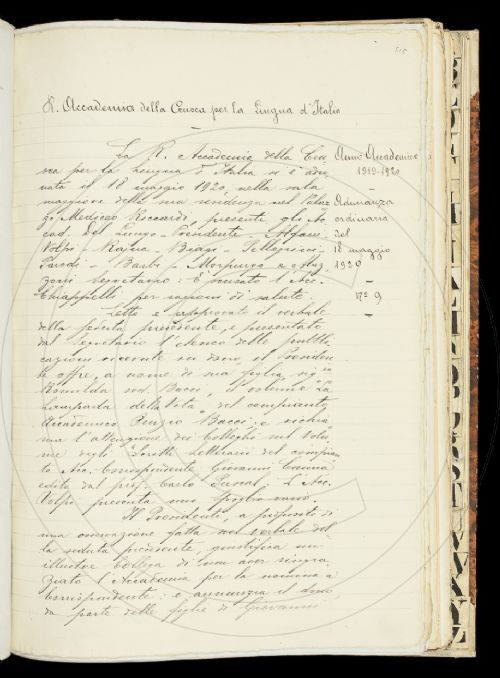 R. Accademia della Crusca per la Lingua d'Italia
La R. Accademia della Cru-
sca per la Lingua d'Italia si è adu-
nata il 18 maggio 1920, nella sala
maggiore della sua residenza nel Palaz-
zo Mediceo Riccardi, presenti gli Ac-
cad. Del Lungo - Presidente -
Volpi - Rajna - Biagi - Pellegrini -
Parodi - Barbi - Morpurgo e Maz-
zoni Segretario: È scusato l'Acc.
Chiappelli per ragioni di salute.
Anno Accademico
1919-1920
Adunanza
ordinaria
del
18 maggio
1920
N.º 9
Letto e approvato il verbale
della seduta precedente, e presentato
dal Segretario l'elenco delle pubbli-
cazioni ricevute in dono, il Presiden-
te offre, a nome di sua figlia
Romilda ved. Bacci, il volume "La
Lampada della Vita" del compianto
Accademico Orazio Bacci, e richia-
ma l'attenzione dei Colleghi sul volu-
me degli Scritti Letterari del compian-
to Acc. Corrispondente Giovanni Canna
edito dal prof. Carlo; l'Acc.
Volpi presenta uno spoglio
Il Presidente, a proposito di
una osservazione fatta sul verbale del-
la seduta precedente, giustifica un
illustre Collega di non aver ringra-
ziato l'Accademia per la nomina a
Corrispondente: e annunzia il dono
da parte delle figlie di Giovanni